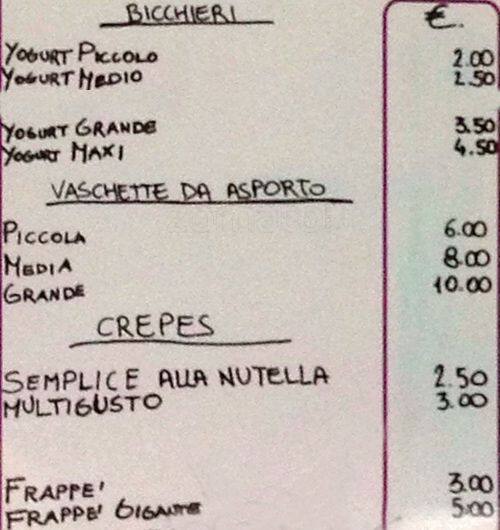 BICCHIERI €.
YOGURT PICCOLO 2.00
YOGURT MEDIO 2.50
YOGURT GRANDE 3.50
YOGURT MAXI 4.50
VASCHETTE DA ASPORTO
PICCOLA 6.00
MEDIA 8.00
GRANDE 10.00
CREPES
SEMPLICE ALLA NUTELLA 2.50
MULTIGUSTO 3.00
FRAPPE' 3.00
FRAPPE' GIGANTE 5.00